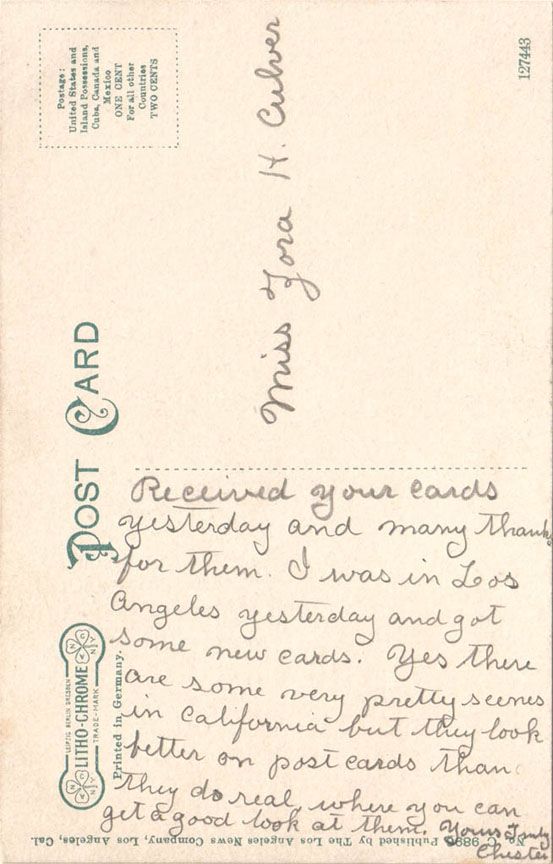 Postage:
United States and
Island Possessions,
Cuba, Canada and
Mexico
ONE CENT
For all other
Countries
TWO CENTS
127443
POST CARD
Miss Zora H. Culver
Received your cards
yesterday and many thanks
for them. I was in Los
Angeles yesterday and got
some new cards. Yes there
are some very pretty scenes
in California but they look
better on post cards than
they do real, where you can
get a good look at them. Yours Truly
Chester
LEIPZIG BERLIN DRESDEN
LITHO-CHROME
TRADE-MARK
N Y C
N Y C
Printed in Germany.
Published by The Los Angeles News Company, Los Angeles, Cal.